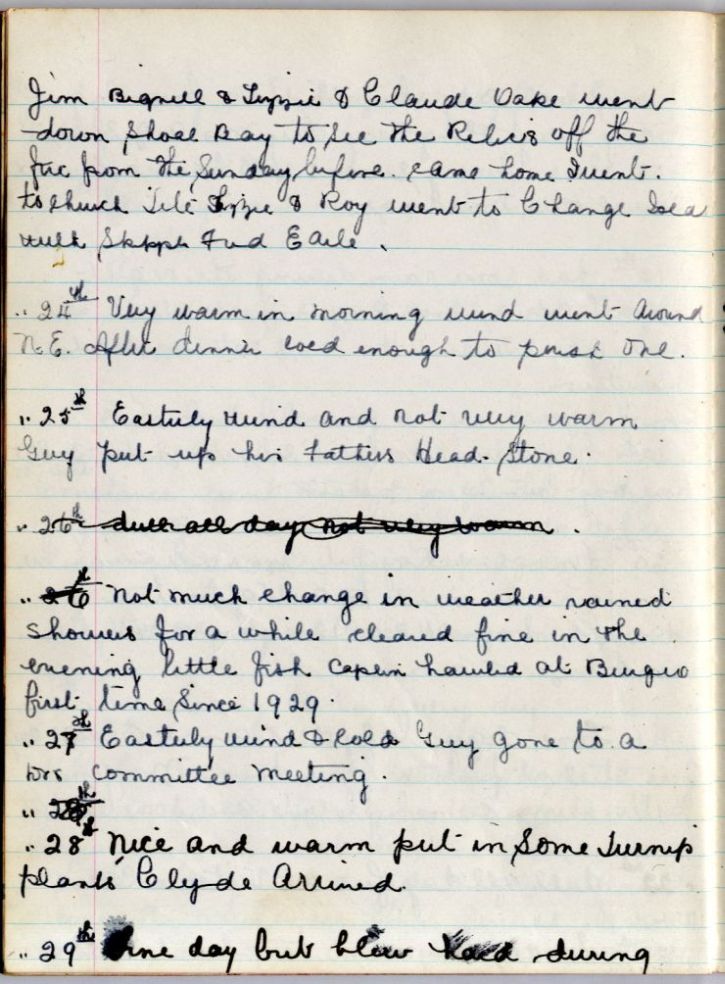 Jim Bignell & Lizzie & Claude Oake went
down Shoal Bay to see the Relics off the
from the Sunday before. came home I went.
to church Lizzie & Roy went to Change Isla
with Skipper Fred Earle.
" 24th Very warm in morning wind went around
N.E. After dinner cold enough to perish one.
" 25th Easterly wind and not very warm
Guy put up his Fathers Head-Stone.
" 26th dull all day not very warm.
" 26th not much change in weather rained
showers for a while cleared fine in the
evening little fish Caplin hauled at
first time since 1929.
" 27th Easterly wind & cold Guy gone to a
committee meeting.
" 28th
" 28th Nice and warm put in some Turnip
plants Clyde Arrived
" 29th Fine day but blew hard during